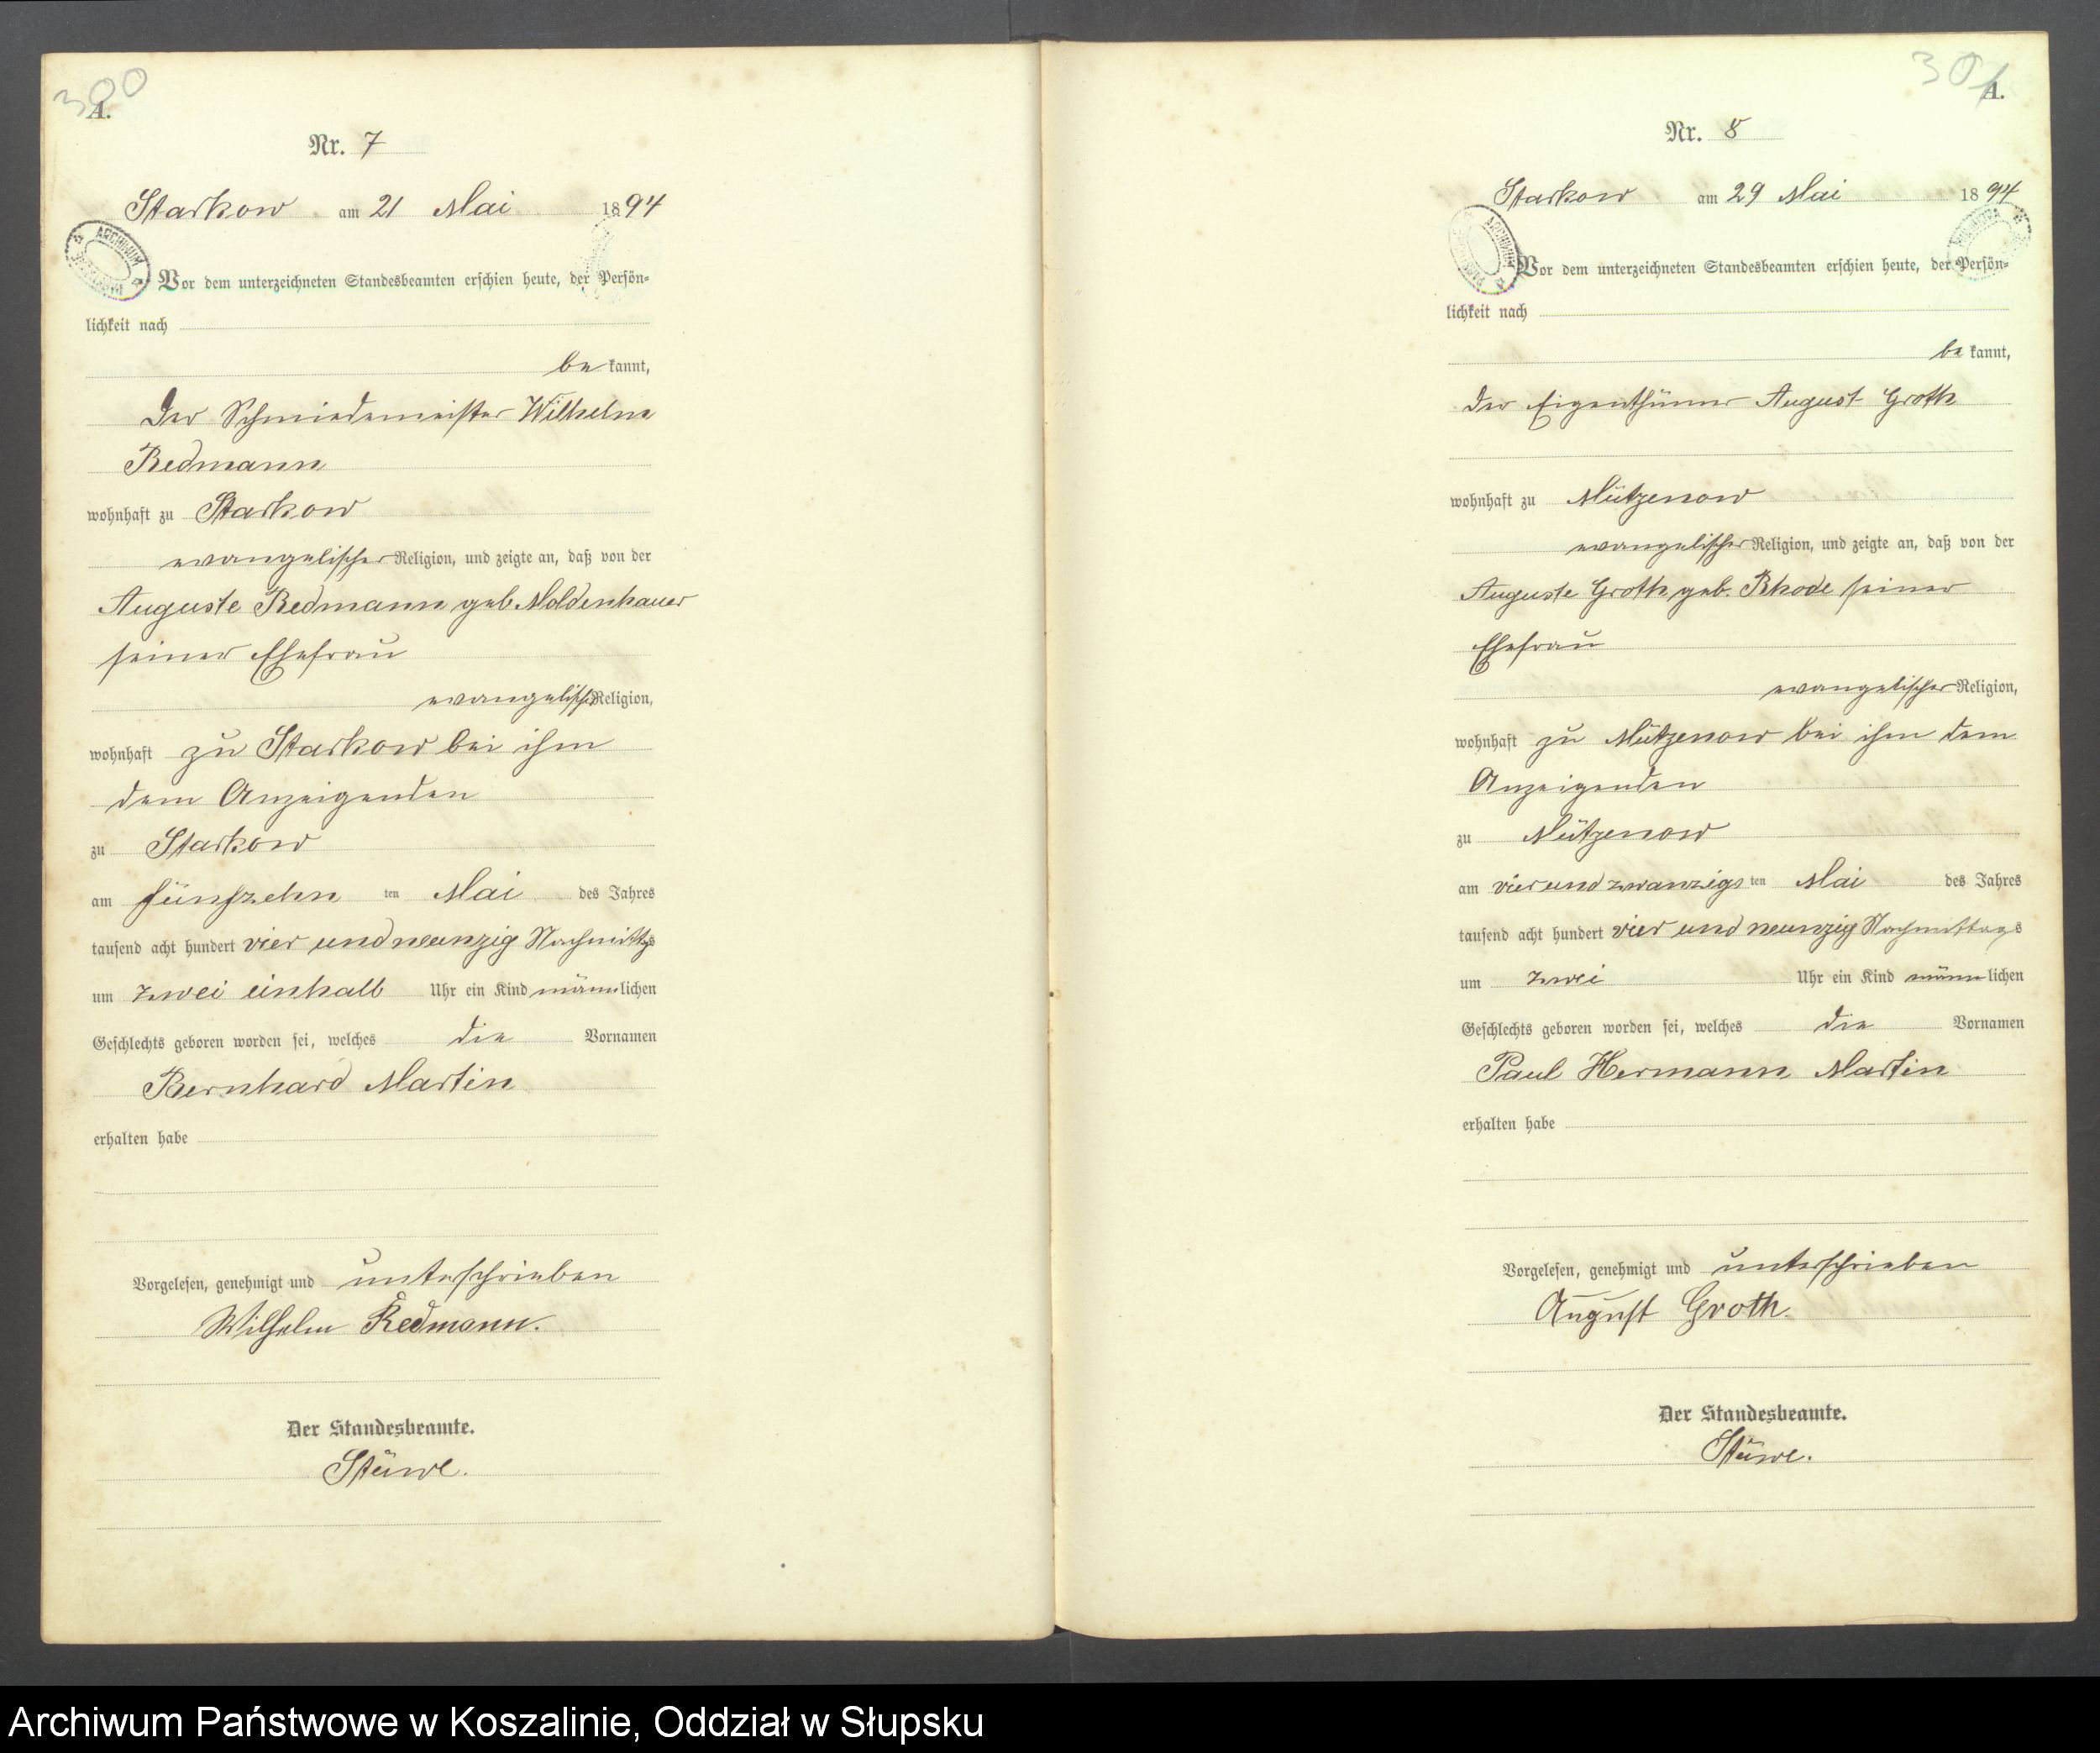 300
A.
Nr. 7
Starkow am 21 Mai 1894
Vor dem unterzeichneten Standesbeamten erschien heute, der Persön-
lichkeit nach
be kannt,
der Schmiedemeister Wilhelm
Redmann
wohnhaft zu Starkow
evangelischer Religion, und zeigte an, daß von der
Auguste Redmann geb. Moldenhauer
seiner Ehefrau
evangelischer Religion,
wohnhaft zu Starkow bei ihm
dem Anzeigenden
zu Starkow
am fünfzehn ten Mai des Jahres
tausend acht hundert vier und neunzig Nachmittags
um zwei einhalb Uhr ein Kind männlichen
Geschlechts geboren worden sei, welches die Vornamen
Bernhard Martin
erhalten habe
Vorgelesen, genehmigt und unterschrieben
Wilhelm Redmann.
Der Standesbeamte.
Stüwe.
301
A.
Nr. 8
Starkow am 29 Mai 1894
Vor dem unterzeichneten Standesbeamten erschien heute, der Persön-
lichkeit nach
be kannt,
der Eigenthümer August Groth
wohnhaft zu Mützenow
evangelischer Religion, und zeigte an, daß von der
Auguste Groth geb. Rhode seiner
Ehefrau
evangelischer Religion,
wohnhaft zu Mützenow bei ihm dem
Anzeigenden
zu Mützenow
am vier und zwanzigs ten Mai des Jahres
tausend acht hundert vier und neunzig Nachmittags
um zwei Uhr ein Kind männlichen
Geschlechts geboren worden sei, welches die Vornamen
Paul Hermann Martin
erhalten habe
Vorgelesen, genehmigt und unterschrieben
August Groth.
Der Standesbeamte.
Stüwe.
Archiwum Państwowe w Koszalinie, Oddział w Słupsku